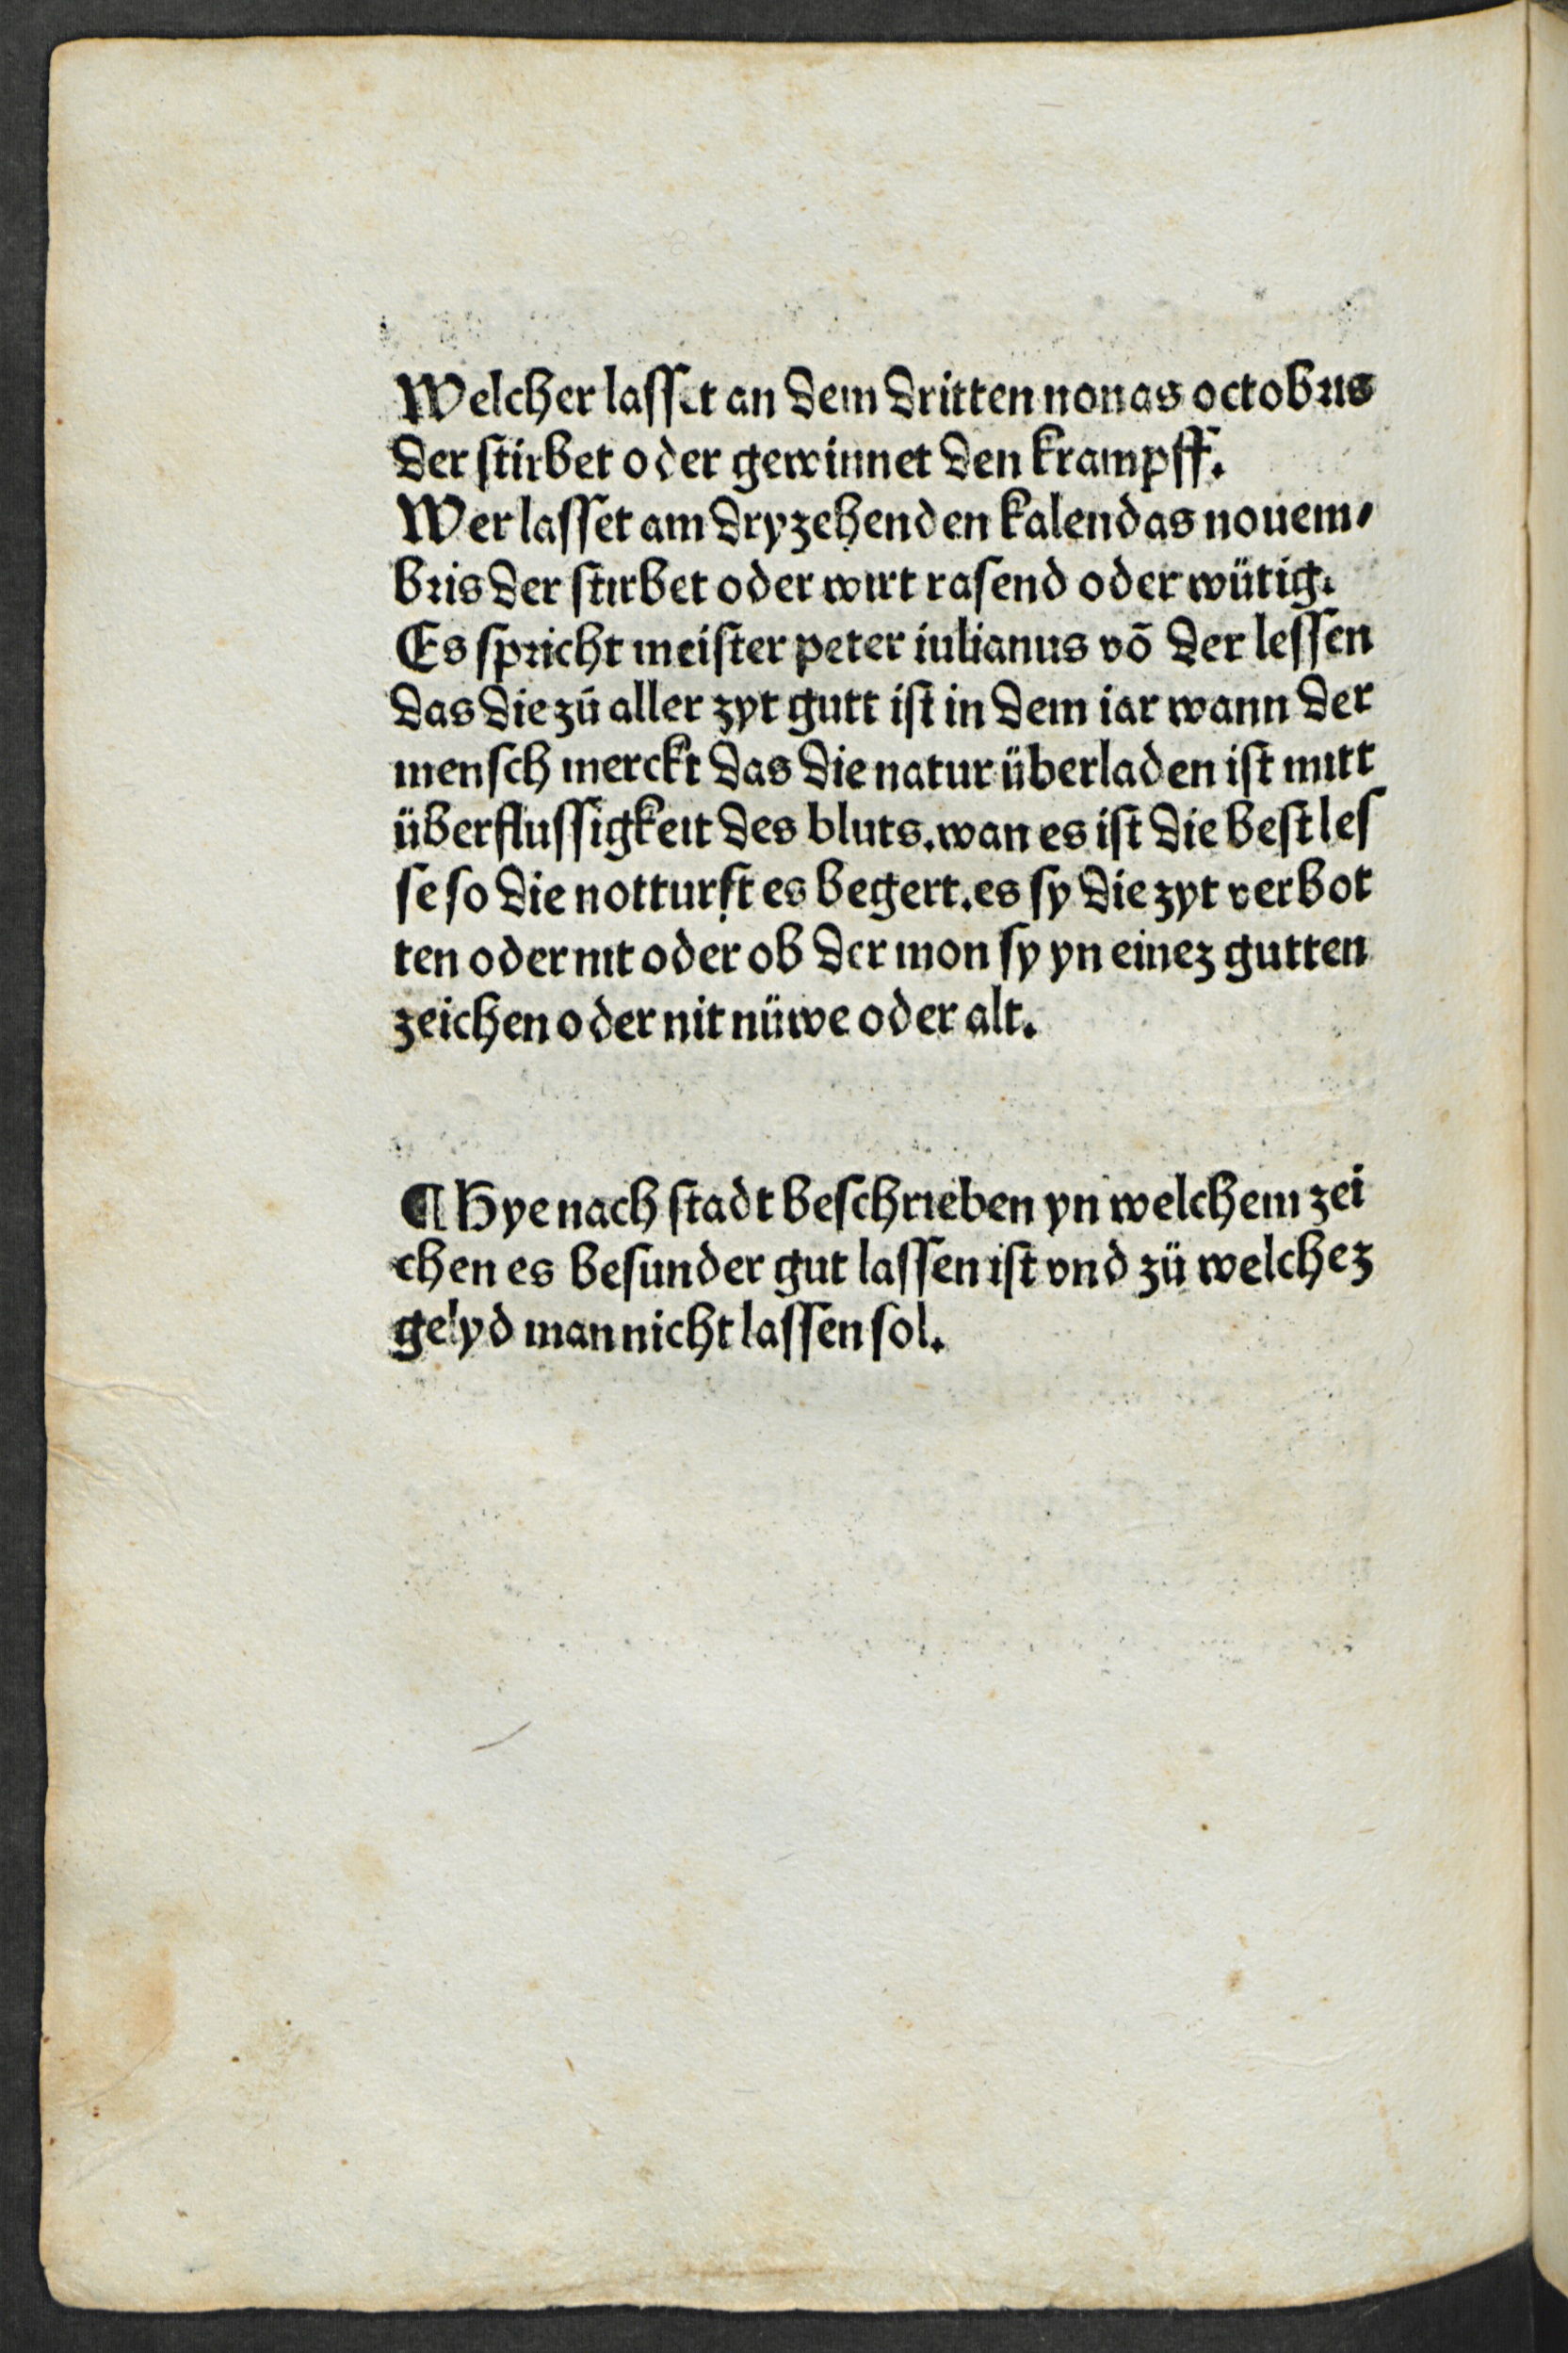 Welcher lasset an dem dritten nonas octobris
der stirbet oder gewinnet den krampff.
Wer lasset am dryzehenden kalendas nouem⸗
bris der stirbet oder wirt rasend oder wütig.
Es spricht meister peter iulianus võ der lessen
das die zů aller zyt gutt ist in dem iar wann der
mensch merckt das die natur überladen ist mitt
überflussigkeit des bluts. wan es ist die best les
se so die notturft es begert. es sy die zyt verbot
ten oder nit oder ob der mon sy yn einez gutten
zeichen oder nit nüwe oder alt.
¶ Hye nach stadt beschrieben yn welchem zei
chen es besunder gut lassen ist vnd zü welchez
gelyd man nicht lassen sol.